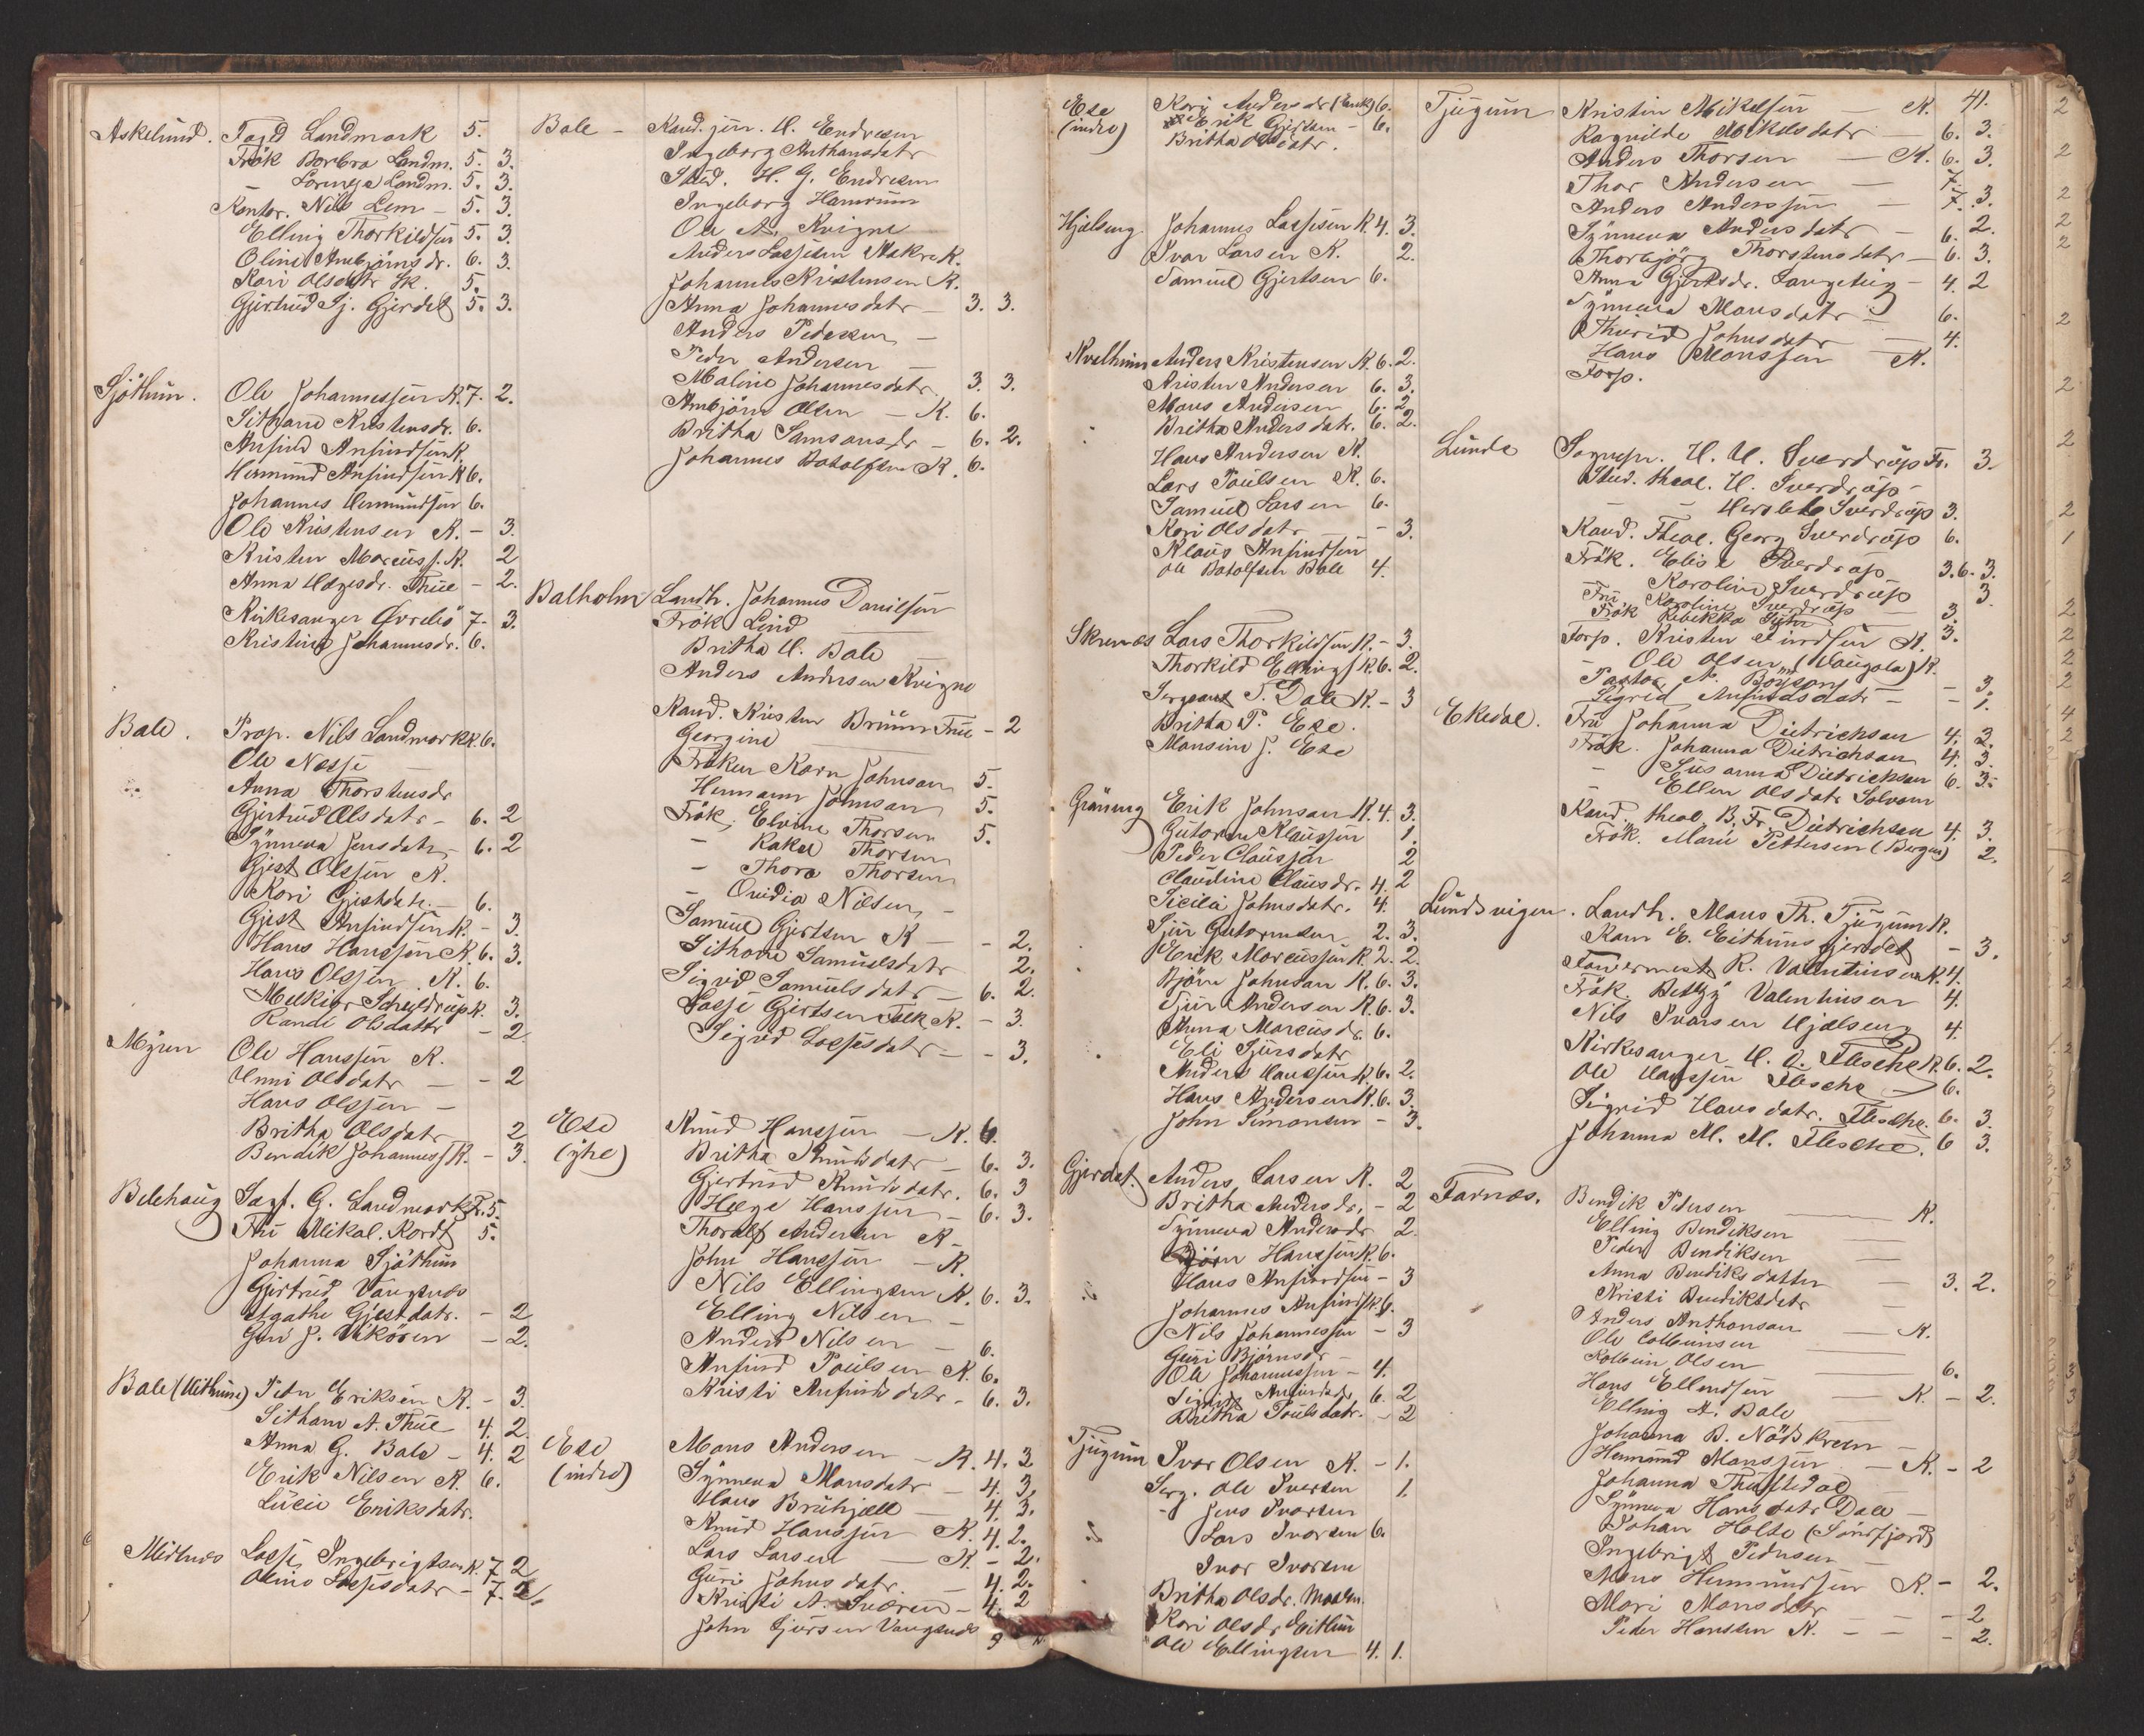 Askelund. Fogd Landmark 5.
Frök Barbra Landm. 5. 3.
— Landm. 5. 3.
Kontor. Nils Lem - 5. 3.
Elling Thorkildsen 5. 3.
Oline Anbjörnsdr. 6. 3.
Kari Olsdatr Sk. 5.
Gjertrud Sj. Gjerdet 5. 3.
Sjöthun. Ole Johannessen K. 7. 2.
Sithane Kristensdr. 6.
Anfind Anfindsen K.
Hermund Anfindsen K 6.
Johannes Hermundsen 6.
Ole Kristensen K. - 3.
Kristen Marcuss. K. 2
Anna Hægesdr. Thue - 2.
Kirkesanger Övrebö 7. 3.
Kristine Johannesdr. 6.
Bale. Prop. Nils Landmark K. 6.
Ole Nesse —
Anna Thorstensdr
Gjertrud Olsdatr - 6. 2
Synneva Jensdatr - 6. 2
Gjest Olssen K.
Kari Gjestdatr. - 6.
Gjest Anfindsen K. - 3.
Hans Hanssen K. 6. 3.
Hans Olssen K. 6.
Melkior Schjeldrup K. 3.
Randi Olsdattr - 2
Myren Ole Hanssen K.
Unni Olsdatr — - 2
Hans Olssen —
Britha Olsdatr 2
Bendik Johanness K. - 3.
Belehaug Sagf. G. Landmark Fr. 5.
Fru Mikal. Kordt 5.
Johanna Sjöthun
Gjertrud Vangsnes
Agathe Gjestdatr. - 2
Guri J. Vikören - 2.
Bale (Uithune) Peder Eriksen K. - 3.
Sithane A. Thue 4. 2.
Anna G. Bale - 4. 2
Erik Nilsen K. 6.
Lucie Eriksdatr.
Midlnes Lasse Ingebrigtsen K. 7. 2
Oline Lassesdatr - 7. 2
Bale - Kand. jur. H. Endresen
Ingeborg Anthansdatr
Stud. H. G. Endresen
Ingeborg Hamrum
Ole A. Kvigne
Anders Lassesen Makre K.
Johannes Kristensen K.
Anna Johannesdatr — 3. 3.
Anders Pedersen —
Peder Andersen —
Maline Johannesdatr 3. 3.
Anbjörn Olsen — K. 6.
Britha Samsonsdr - 6. 2.
Johannes Botolfsen K. 6.
Balholm Landh. Johannes Danielsen
Frök Lind
Britha H. Bale
Anders Andersen Kvigne
Kand. Kristen Bruun Frue - 2
Georgine
Fröken Karn Johnson 5.
Hermann Johnson 5.
Frök. Elvine Thorsen 5.
— Rakel Thorsen
— Thora Thorsen
— Ovidia Nilsen —
Samuel Gjertsen K — - 2.
Sithane Samuelsdatr 2.
Sigrid Samuelsdatr — 6. 2.
Lasse Gjertsen K. - 3.
Sigrid Lassesdatr — - 3.
Ese (ytre) Knud Hanssen — K. 6.
Britha Knudsdatr — 6. 3.
Gjertrud Knudsdatr. 6. 3
Helge Hanssen — 6. 3.
Thorolf Andersen K -
John Hanssen — K.
Nils Ellingsen K. 6. 3.
Elling Nilsen —
Anders Nilsen — 6.
Anfind Poulsen K. 6.
Kristi Anfindsdatr - 6. 3.
Ese (indre) Mons Andersen — K. 4. 3.
Synneva Monsdatr — 4. 3.
Hans Bruhjell — 4. 3.
Knud Hanssen K. 4. 2.
Lars Larsen — K - 2.
Guri Johnsdatr. — 4. 2.
Kristi A. Sværen - 4. 2
John Sjursen Vangsnes
Ese (indre) Kari Andersdr (Enk) 6.
Erik Gjertsen - 6.
Britha Olsdatr.
Hjelseng Johannes Lassesen K. 4. 3.
Ivar Larsen K. 2.
Samuel Gjertsen 6.
Kvelhuin Anders Kristensen K. 6. 2.
Kristen Andersen 6. 3.
Mons Andersen 6. 2
Britha Andersdatr. 6. 2.
Hans Andersen K.
Lars Poulsen K. 6.
Samuel Larsen 6.
Kari Olsdatr - 3.
Klaus Anfindsen
Ole Botolfsen Bale 4.
Skrenes Lars Thorkildsen K. - 3.
Thorkild Ellings K. 6. 2.
Sergeant T. Dale K. - 3
Britha P. Ese.
Monsine J. Ese
Gröneng Erik Johnson K. 4. 3.
Gutorm Klaussen 1.
Peder Claussen 2
Claudine Clausdr. 4. 2
Sicilia Johnsdatr. 4.
Sjur Gutormsen 2. 3.
Erik Marcussen K. 2. 2.
Björn Johnson K. 6. 3.
Sjur Andersen K. 6. 3.
Anna Marcusdr. 6.
Eli Sjursdatr
Anders Hanssen K. 6. 2.
Hans Andersen K. 6. 3.
John Simonsen - 3.
Gjerdet. Anders Larsen K. 2
Britha Andersdr. - 2
Synneva Andersdr 2.
Björn Hanssen K. 6.
Hans Anfindsen - 3
Johannes Anfinds K. 6.
Nils Johannessen - 3
Guri Björnsdr -
Ole Johannessen - 4.
Sigrid Anfindsdr 6. 2
Britha Poulsdatr. - 2
Tjugum Ivar Olsen K. - 1.
Serg. Ole Iversen 1.
- Jens Ivarsen
Lars Ivarsen 6.
Ivar Ivarsen
Britha Olsdr. Moaln.
Kari Olsdr Eithun
Ole Ellingsen 4. 1.
41.
Tjugum Kristen Mikelsen — K.
Ragnilde Mikelsdatr — 6. 3.
Anders Thorsen — K. 6. 3.
Thor Andersen — 7.
Anders Anderssen — 7. 3.
Synneva Andersdatr - 6. 2.
Thorbjörg Thorstensdatr - 6. 3.
Anna Gjertsdr. Langeteig - 4. 2
Synneva Monsdatr — 6.
Thurid Johnsdatr — 4.
Hans Monssen — K.
Forp.
Lunde Sognepr. H. U. Sverdrup Fr. 3.
Stud. theol. H. Sverdrup -
— Herslebe Sverdrup 3.
Kand. Theol. Georg Sverdrup 6.
Frök. Elise Sverdrup 3. 6. 3.
Fru Karoline Sverdrup 3
Frök Karoline Sverdrup 3.
Frök Rebekka
Forp. Kristen Findsen K. 3.
— Ole Olsen (Haugala) K.
Pastor N. Böyson - 3.
Sigrid Anfindsdatr — - 1.
Ekedal. Fru Johanna Dietrichson 4. 3.
Frök. Johanna Dietrichson 4. 3.
— Susanna Dietrichson 6. 3.
Ellen Olsdatr Solvorn
Kand. theol. B. Fr. Dietrichson 4. 3.
Frök. Marie Pettersen (Bergen) 2.
Lundsvigen. Landh. Mons Th. Tjugum K.
Karn E. Eithuns gjerdet - 3.
Farvermest. R. Valentinsen K. 4.
Frök. Betty Valentinsen 4.
Nils Ivarsen Hjelseng 4.
Kirkesanger H. O. Flesche K. 6. 2.
Ole Hanssen Flesche — 6.
Sigrid Hansdatr. Flesche. 6. 3.
Johanna M. M. Flesche. 6 3.
Farnes. Bendik Pedersen — K.
Elling Bendiksen —
Peder Bendiksen —
Anna Bendiksdatter — 3. 2.
Kristi Bendiksdatr —
Anders Anthonson — K.
Ole Colbeinsen —
Kolbein Olsen — 6.
Hans Ellendsen — K - 2.
Elling A. Bale —
Johanna B. Nösskreen —
Hermund Monssen — K. - 2
Johanna Thuftedal
Synneva Hansdatr Dale —
Johan Holse (Söndfjord)
Ingebrigt Pedersen —
Mons Hermundsen K. - 2.
Mari Monsdatr — - 2
Peder Hanssen K. - - 2.